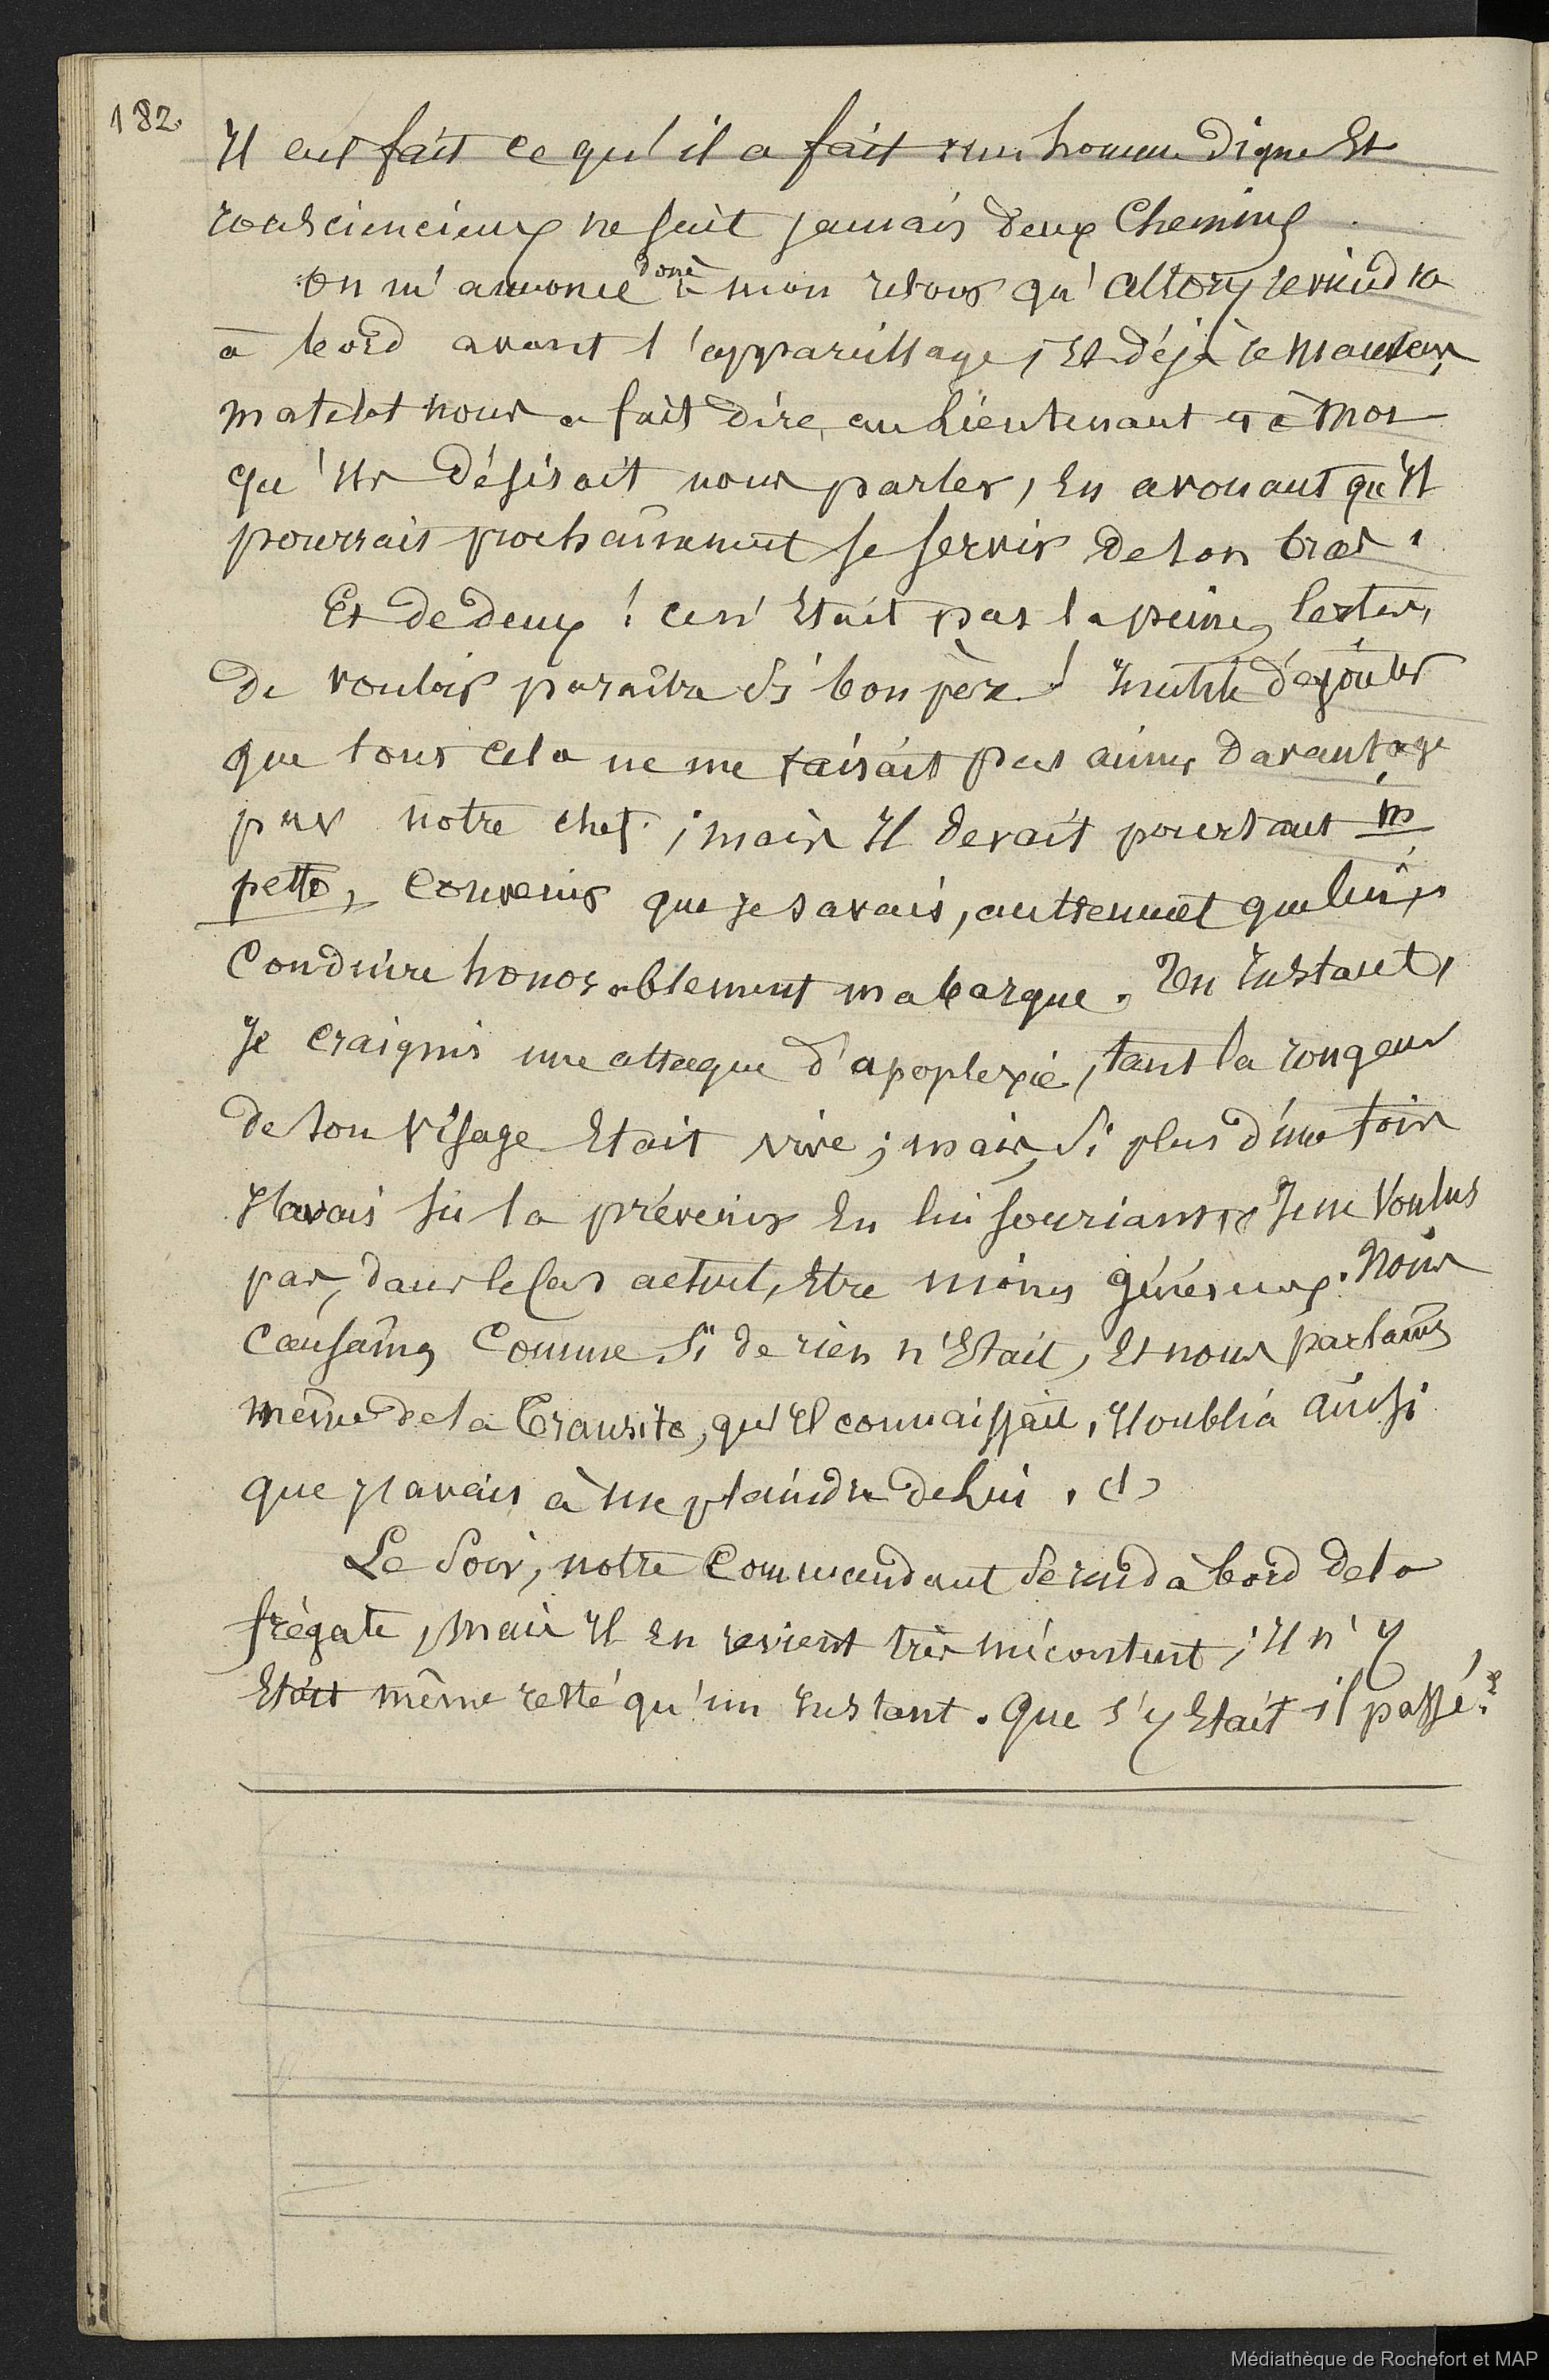 182.
Il eut fait ce qu'il a fait : un homme digne et
consciencieux ne suit jamais deux chemins.
On m'annonce donc à mon retour qu'Altory reviendra
à bord avant l'appareillage, et déjà le mauvais
matelot nous a fait dire, au Lieutenant et à moi
qu'il désirait nous parler, en avouant qu'il
pourrait prochainement se servir de son bras.
Et de deux ! ce n'était pas la peine, certes,
de vouloir paraître si bon père ! Inutile d'ajouter
que tout cela ne me faisait pas aimer davantage
par notre chef ; mais il devait pourtant in
petto, convenir que je savais, autrement que lui,
conduire honorablement ma barque. Un instant,
je craignis une attaque d'apoplexie, tant la rougeur
de son visage était vive ; mais, si plus d'une fois
j'avais su la prévenir en lui souriant, je ne voulus
pas, dans le cas actuel, être moins généreux. Nous
causâmes comme si de rien n'était, et nous parlâmes
même de la Transito, qu'il connaissait. J'oubliai ainsi
que j'avais à me plaindre de lui.
Le soir, notre Commandant se rend à bord de la
frégate, mais il en revient très mécontent ; il n'y
était même resté qu'un instant. Que s'y était-il passé ?
Médiathèque de Rochefort et MAP